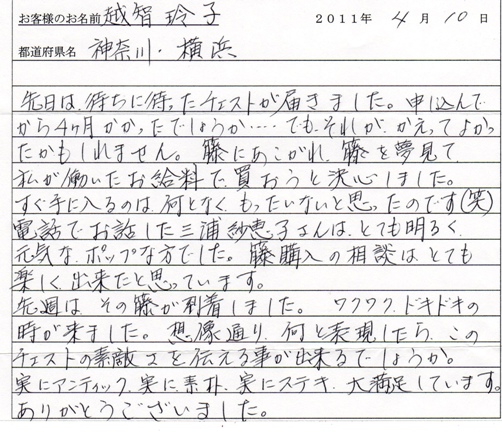 お客様のお名前 越智 玲子 2011年 4月 10日
都道府県名 神奈川・横浜
先日は、待ちに待ったチェストが届きました。申し込んで
から4ヶ月かかったでしょうか‥‥ でも、それが、かえってよかっ
たかもしれません。籐にあこがれ、籐を夢見て
私が働いたお給料で、買おうと決心しました。
すぐ手に入るのは、何となく、もったいないと思ったのです(笑)
電話でお話した三浦紗恵子さんは、とても明るく、
元気な、ポップな方でした。籐購入の相談はとても
楽しく出来たと思っています。
先週は、その籐が到着しました。ワクワク、ドキドキの
時が来ました。想像通り、何と表現したら、この
チェストの素敵さを伝える事が出来るでしょうか。
実にアンティック、実に、素朴、実にステキ、大満足しています。
ありがとうございました。